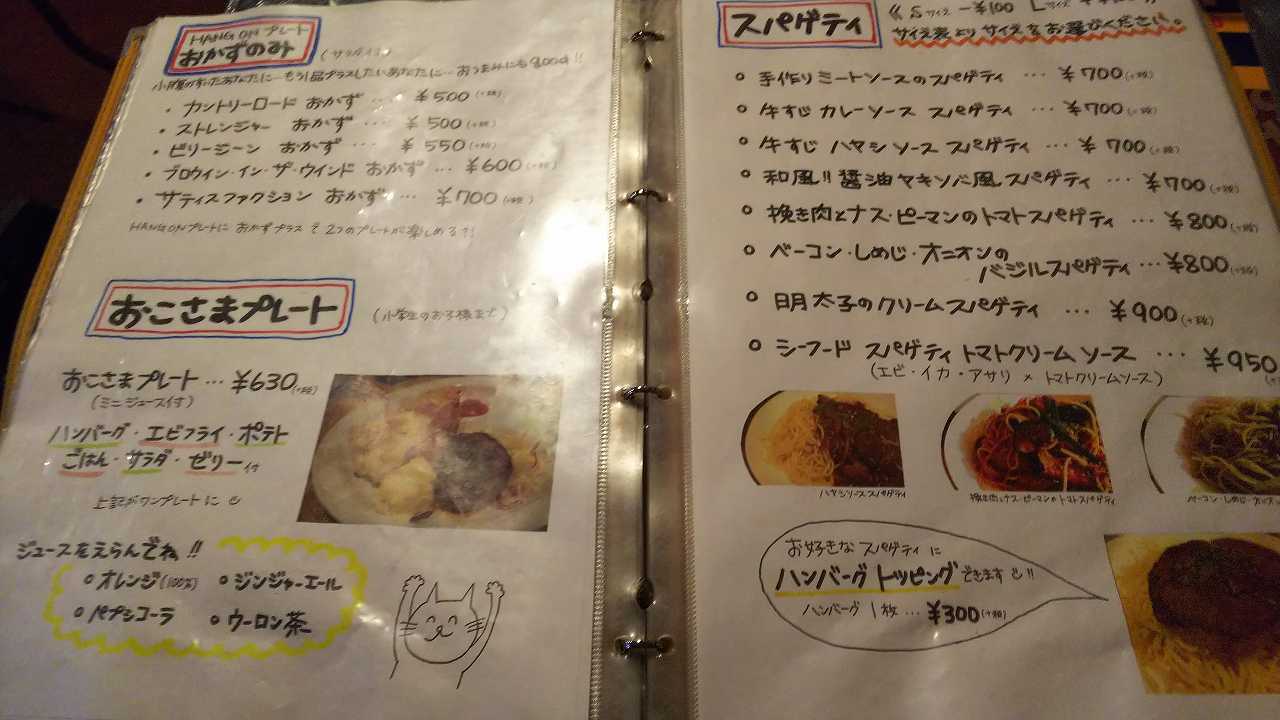 HANG ON プレート
おかずのみ
(サラダ付き)
小腹のすいたあなたに…もう1品プラスしたいあなたに…おつまみにもgood!!
・カントリーロード おかず … ¥500(+税)
・ストレンジャー おかず … ¥500(+税)
・ビリージーン おかず … ¥550(+税)
・ブロウイン・イン・ザ・ウインド おかず … ¥600(+税)
・サティスファクション おかず … ¥700(+税)
HANG ONプレートに おかずプラスで 2つのプレートが楽しめる?!
おこさまプレート
(小学生のお子様まで)
おこさまプレート … ¥630(+税)
(ミニジュース付)
ハンバーグ・エビフライ・ポテト
ごはん・サラダ・ゼリー付
上記がワンプレートに
ジュースをえらんでね!!
○オレンジ(100%) ○ジンジャーエール
○ペプシコーラ ○ウーロン茶
スパゲティ
《Sサイズ −¥100 Lサイズ
サイズ表よりサイズをお選びください。
○手作りミートソースのスパゲティ … ¥700(+税)
○牛すじ カレーソース スパゲティ … ¥700(+税)
○牛すじ ハヤシソース スパゲティ … ¥700(+税)
○和風!!醤油ヤキソバ風スパゲティ … ¥700(+税)
○挽き肉とナス・ピーマンのトマトスパゲティ … ¥800(+税)
○ベーコン・しめじ・オニオンの
バジルスパゲティ … ¥800(+税)
○明太子のクリームスパゲティ … ¥900(+税)
○シーフード スパゲティ トマトクリームソース … ¥950
(エビ・イカ・アサリ × トマトクリームソース)
ハヤシソーススパゲティ
挽き肉とナス・ピーマンのトマトスパゲティ
ベーコン・しめじ・オニオン
お好きな スパゲティに
ハンバーグ トッピング できます!!
ハンバーグ 1枚 … ¥300(+税)